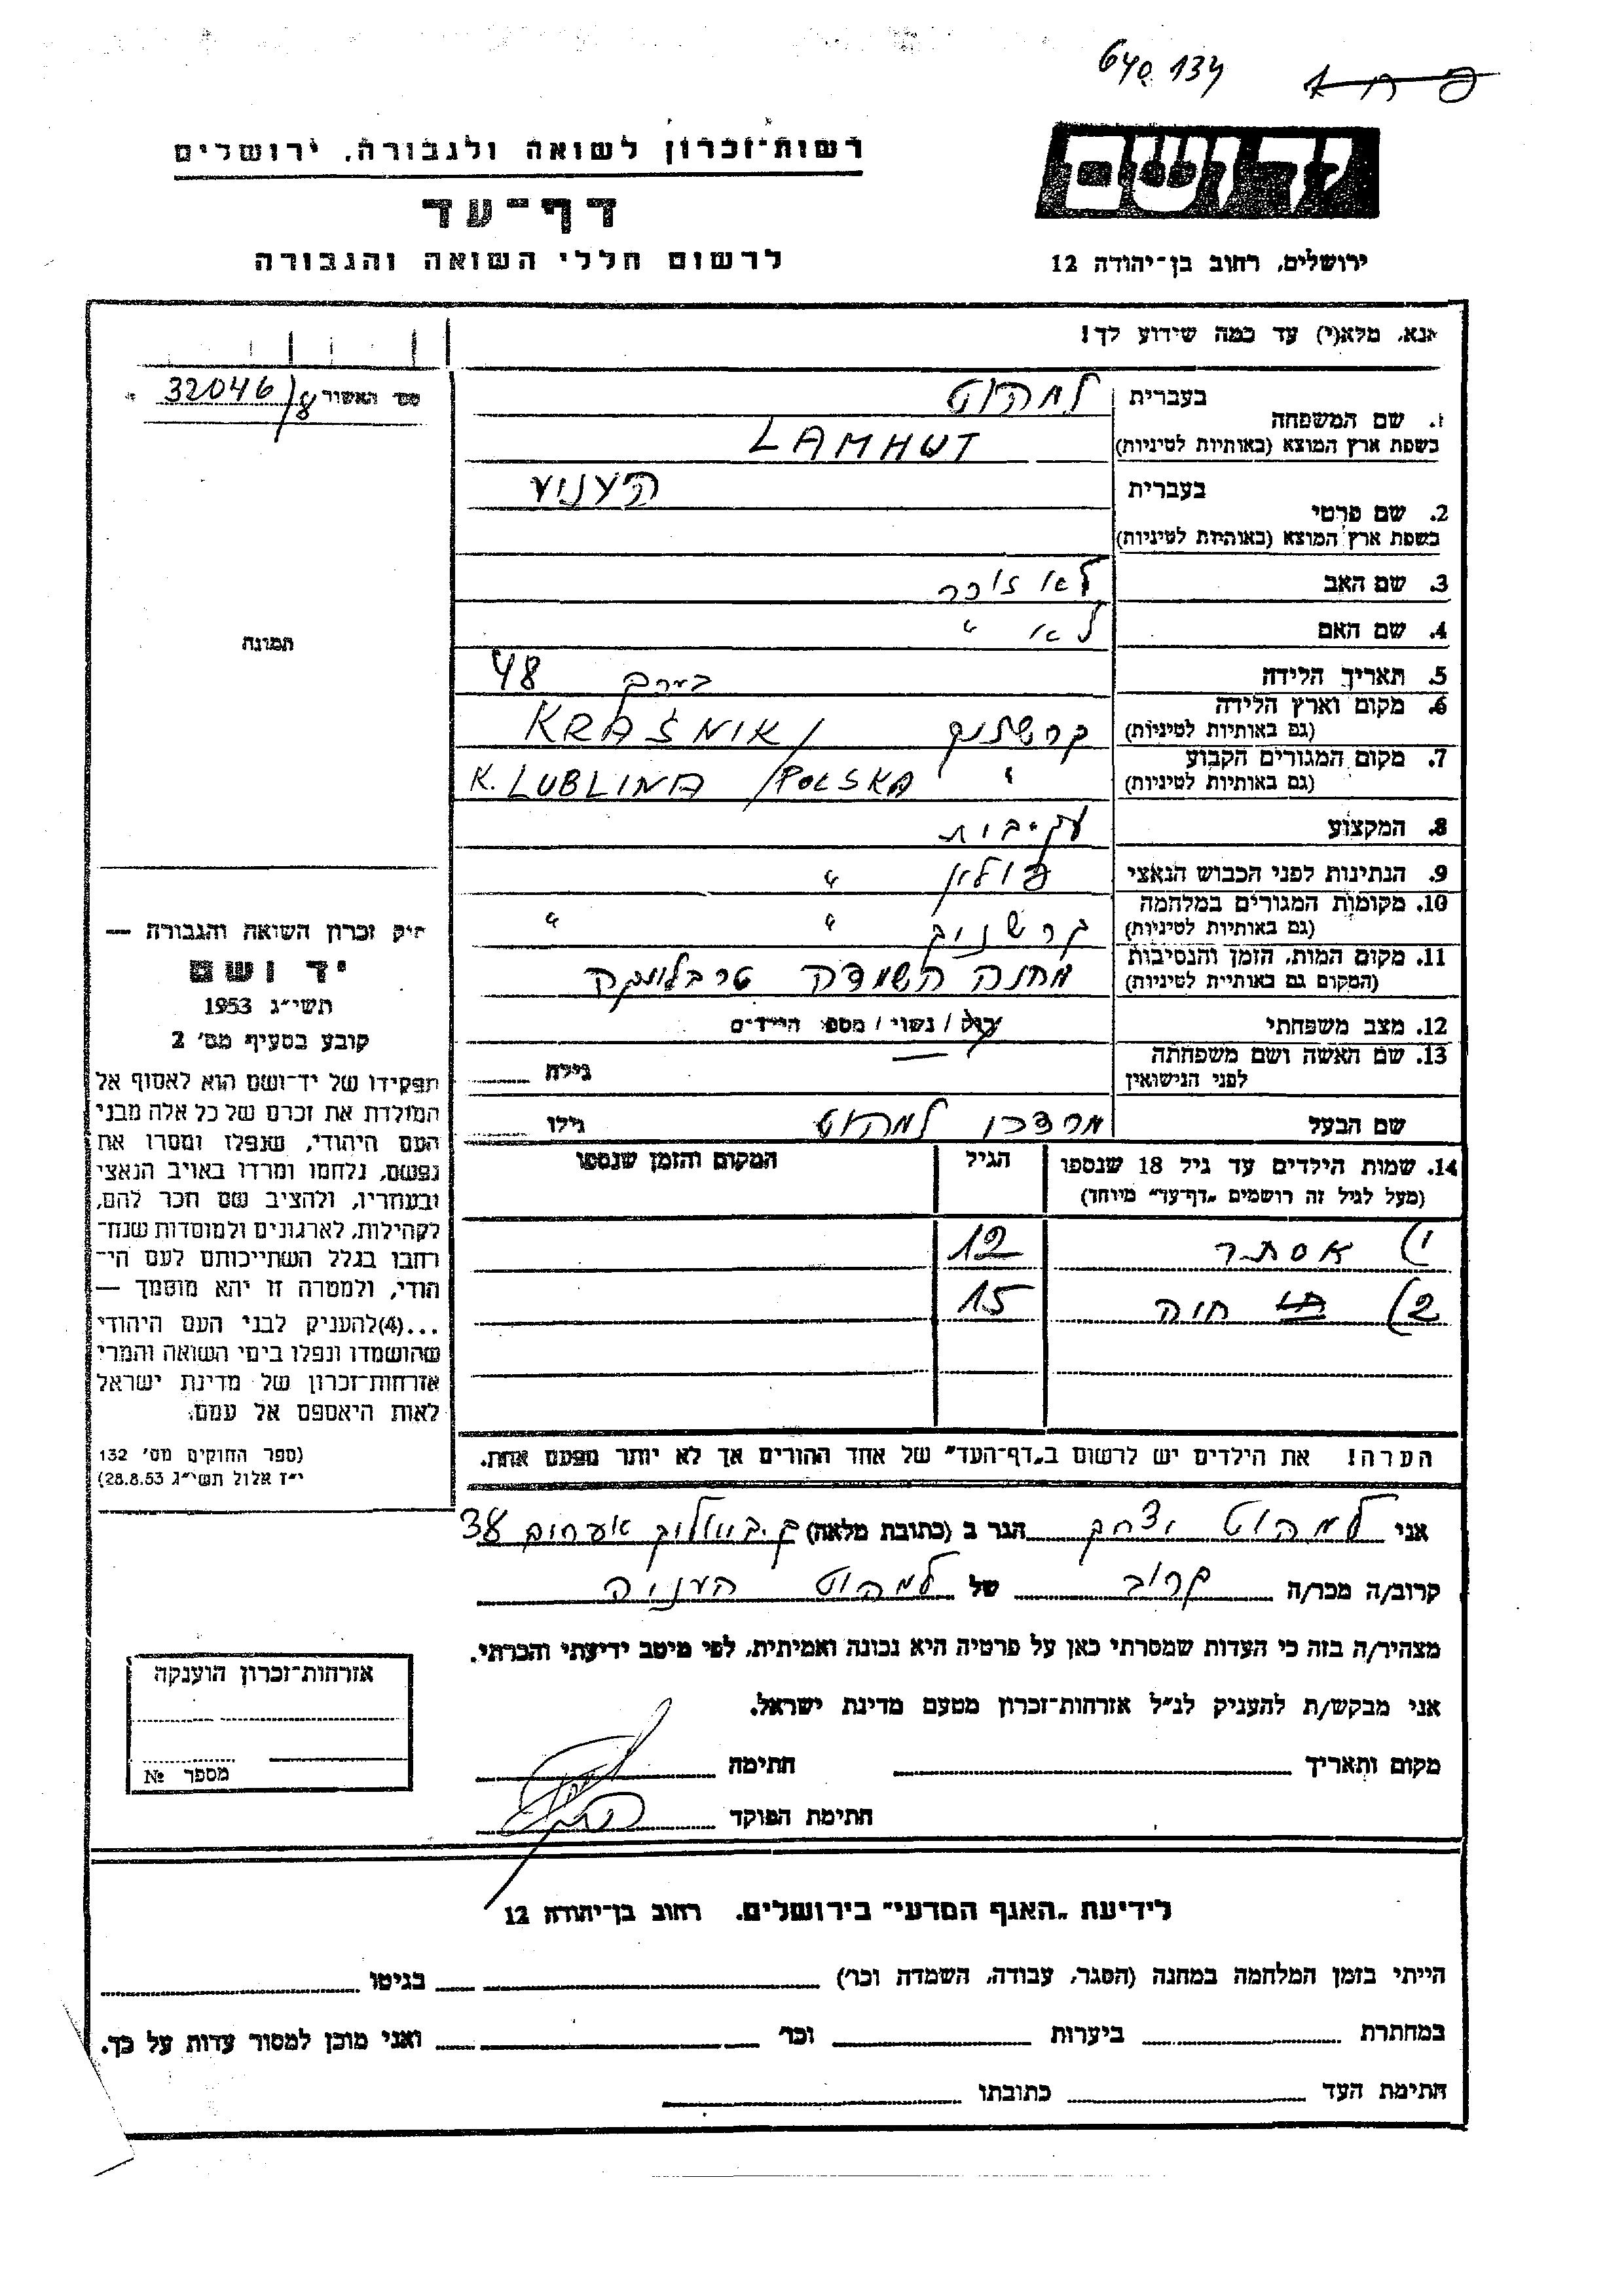 640 134
רשות־זכרון לשואה ולגבורה, ירושלים
דף־עד
לרשום חללי השואה והגבורה
ידושם
ירושלים, רחוב בן־יהודה 12
אנא, מלא(י) עד כמה שידוע לך!
מס׳ האשור 32046/
1. שם המשפחה
בעברית למהוט
בשפת ארץ המוצא (באותיות לטיניות) LAMHUT
2. שם פרטי
בעברית
בשפת ארץ המוצא (באותיות לטיניות)
3. שם האב לא זוכר
4. שם האם לא "
5. תאריך הלידה בערך 48
6. מקום וארץ הלידה (גם באותיות לטיניות) קרשניק KRAŚNIK/
7. מקום המגורים הקבוע (גם באותיות לטיניות) " K. LUBLINA /POLSKA
8. המקצוע עק. בית
9. הנתינות לפני הכבוש הנאצי פולין "
10. מקומות המגורים במלחמה (גם באותיות לטיניות) קרשניק " "
11. מקום המות, הזמן והנסיבות (המקום גם באותיות לטיניות) מחנה השמדה טרבלינקה
12. מצב משפחתי רוק / נשוי / מספר הילדים
13. שם האשה ושם משפחתה לפני הנישואין גילה
שם הבעל מרדכי למהוט גילו
14. שמות הילדים עד גיל 18 שנספו הגיל המקום והזמן שנספו
(מעל לגיל זה רושמים „דף־עד״ מיוחד)
1) אסתר 12
2) חוה 15
הערה! את הילדים יש לרשום ב„דף־העד״ של אחד ההורים אך לא יותר מפעם אחת.
תמונה
חוק זכרון השואה והגבורה —
יד ושם
תשי״ג 1953
קובע בסעיף מס׳ 2
תפקידו של יד־ושם הוא לאסוף אל
המולדת את זכרם של כל אלה מבני
העם היהודי, שנפלו ומסרו את
נפשם, נלחמו ומרדו באויב הנאצי
ובעוזריו, ולהציב שם וזכר להם,
לקהילות, לארגונים ולמוסדות שנח־
רבו בגלל השתייכותם לעם הי־
הודי, ולמטרה זו יהא מוסמך —
...(4)להעניק לבני העם היהודי
שהושמדו ונפלו בימי השואה והמרי
אזרחות־זכרון של מדינת ישראל
לאות היאספם אל עמם.
(ספר החוקים מס׳ 132
י״ז אלול תשי״ג 28.8.53)
אני למהוט יצחק הגר ב (כתובת מלאה) ק. ביאליק 38
קרוב/ה מכר/ה קרוב של למהוט
מצהיר/ה בזה כי העדות שמסרתי כאן על פרטיה היא נכונה ואמיתית, לפי מיטב ידיעתי והכרתי.
אני מבקש/ת להעניק לנ״ל אזרחות־זכרון מטעם מדינת ישראל.
מקום ותאריך חתימה
חתימת הפוקד
אזרחות־זכרון הוענקה
מספר №
לידיעת „האגף המדעי״ בירושלים. רחוב בן־יהודה 12
הייתי בזמן המלחמה במחנה (הסגר, עבודה, השמדה וכו׳) בגיטו
במחתרת ביערות וכו׳ ואני מוכן למסור עדות על כך.
חתימת העד כתובתו